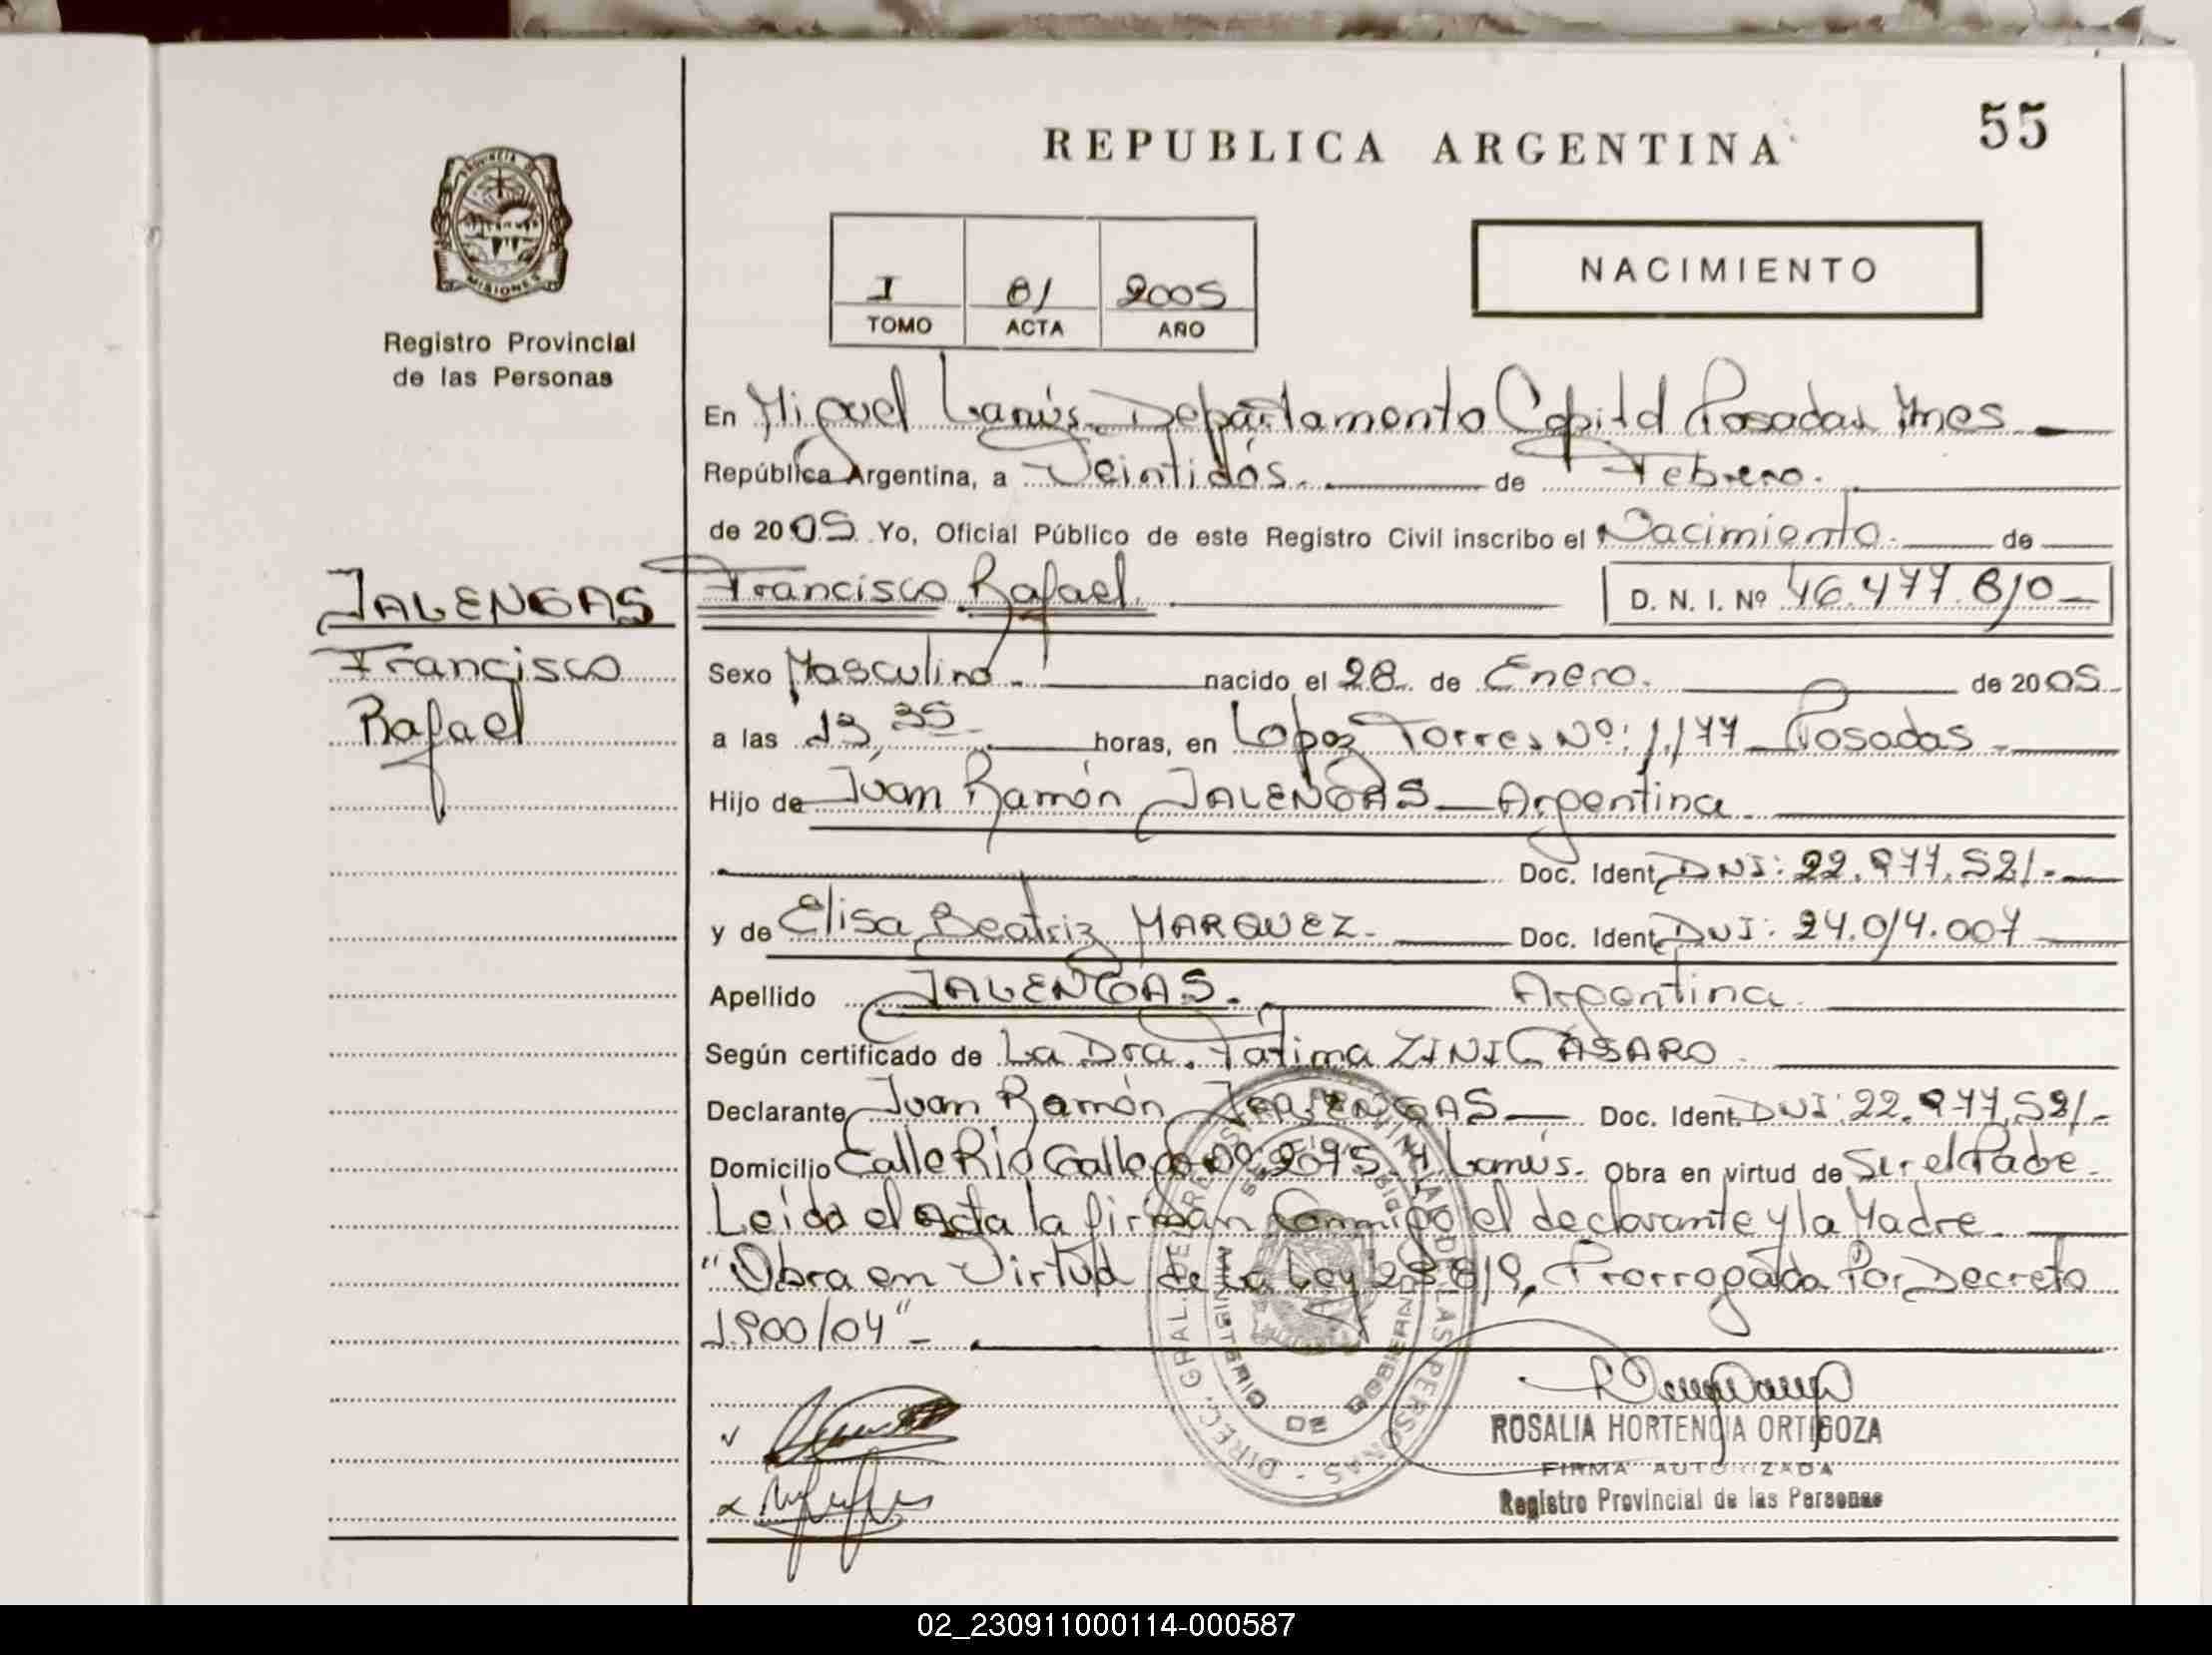 REPUBLICA ARGENTINA
55
PROVINCIA DE
MISIONES
Registro Provincial
de las Personas
I 81 2005
TOMO ACTA AÑO
NACIMIENTO
En Miguel Lanús. Departamento Capital Posadas Mnes
República Argentina, a Veintidós. de Febrero.
de 2005 Yo, Oficial Público de este Registro Civil inscribo el Nacimiento. de
JALENGAS
Francisco
Rafael
Francisco Rafael. D. N. I. Nº 46.477.810
Sexo Masculino nacido el 28 de Enero. de 2005
a las 13,35 horas, en Lopez Torres Nº: 1.177 Posadas
Hijo de Juan Ramón JALENGAS Argentina
Doc. Ident. DNI: 22.977.521.
y de Elisa Beatriz MARQUEZ. Doc. Ident. DNI: 24.014.007
Apellido JALENGAS. Argentina
Según certificado de La Dra. Fatima ZINI CASARO.
Declarante Juan Ramón JALENGAS Doc. Ident. DNI: 22.977.521.
Domicilio Calle Rio Gallego Nº 2695. M. Lanús. Obra en virtud de Ser el Padre.
Leido el Acta la firman Conmigo el declarante y la Madre
"Obra en Virtud de la Ley 25.819, Prorrogada Por Decreto
1.900/04"
DIREC. GRAL. DEL REGISTRO PROVINCIAL DE LAS PERSONAS
MINISTERIO DE GOBIERNO
ROSALIA HORTENCIA ORTIGOZA
FIRMA AUTORIZADA
Registro Provincial de las Personas
02_230911000114-000587